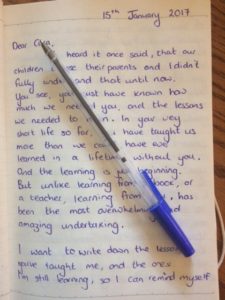 15th January 2017
Dear Cara,
heard it once said, that our
children their parents and I didn't
fully und and that until now.
You see, you must have known how
much we ne you, and the lessons
we needed to rn. In your very
short life so far, have taught us
more than we can have ve
learned in a lifetime without you.
And the learning is beginning.
But unlike learning from book, or
a teacher, learning from has
been the most overwhelming nd
amazing undertaking.
I want to write down the lesson
you've taught me, and the ones
I'm still learning, so I can remind myself